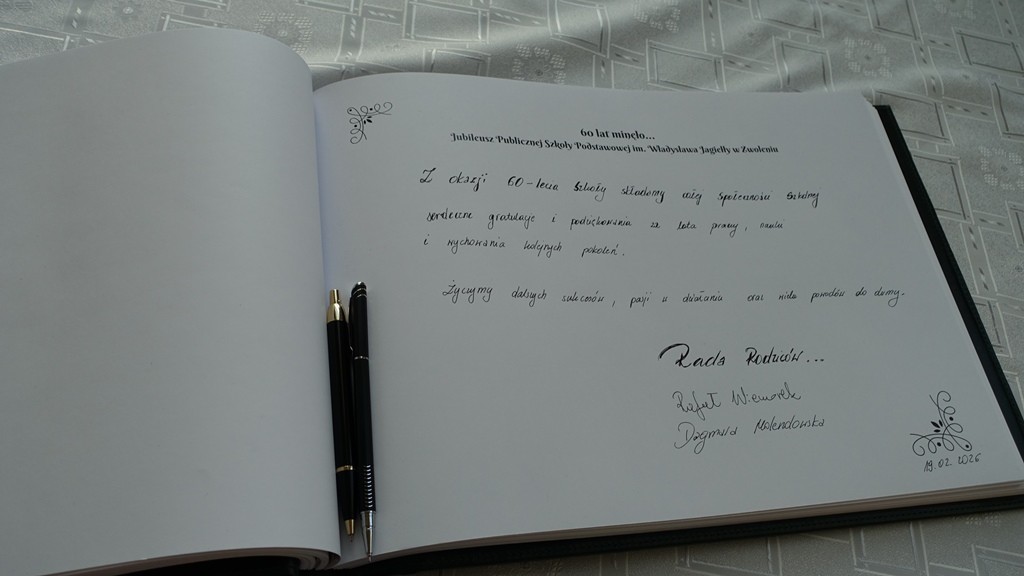 60 lat minęło...
Jubileusz Publicznej Szkoły Podstawowej im. Władysława Jagiełły w Zwoleniu
Z okazji 60-lecia Szkoły składamy całej Społeczności Szkolnej
serdeczne gratulacje i podziękowania za lata pracy, nauki
i wychowania kolejnych pokoleń.
Życzymy dalszych sukcesów, pasji w działaniu oraz wielu powodów do dumy.
Rada Rodziców...
Rafał
Dagmara Molendowska
19.02.2026